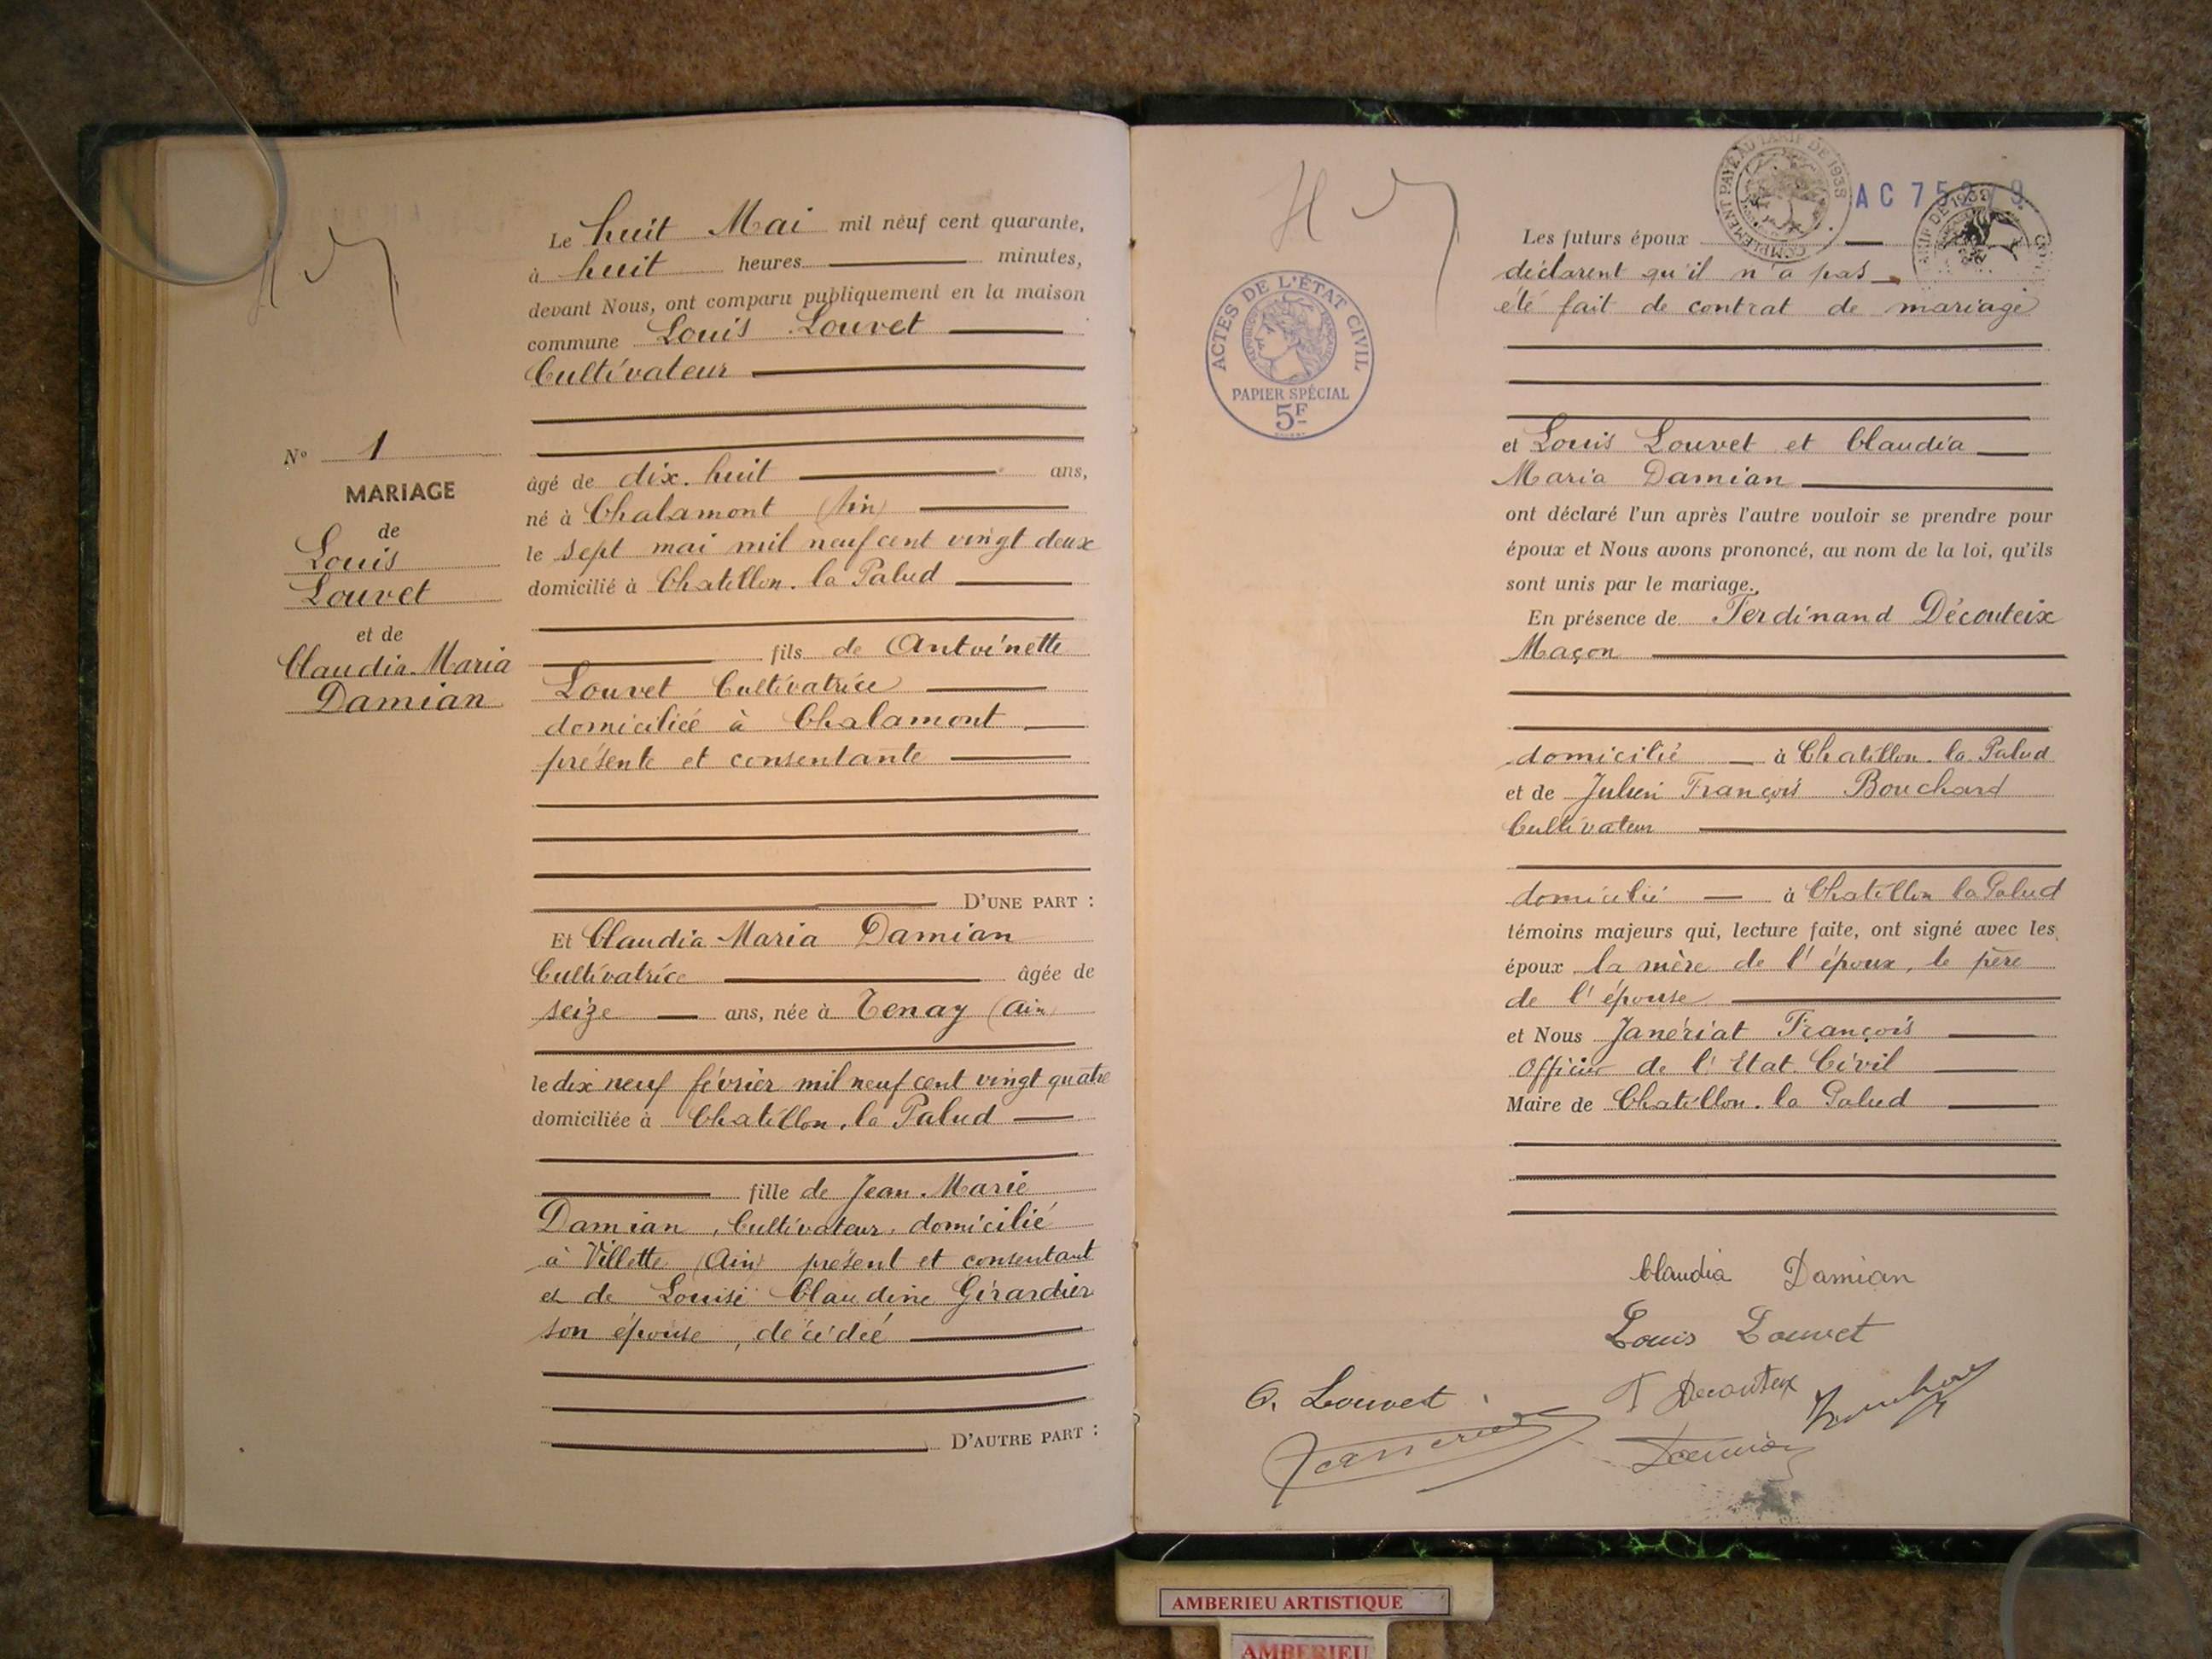 Le huit Mai mil neuf cent quarante,
à huit heures minutes,
devant Nous, ont comparu publiquement en la maison
commune Louis Louvet
Cultivateur
âgé de dix-huit ans,
né à Chalamont (Ain)
le sept mai mil neuf cent vingt deux
domicilié à Chatillon-la Palud
fils de Antoinette
Louvet Cultivatrice
domiciliée à Chalamont
présente et consentante
D'UNE PART :
Et Claudia-Maria Damian
Cultivatrice âgée de
seize ans, née à Tenay (Ain)
le dix neuf février mil neuf cent vingt quatre
domiciliée à Chatillon-la Palud
fille de Jean-Marie
Damian, Cultivateur, domicilié
à Villette (Ain) présent et consentant
et de Louise Claudine Girardier
son épouse, décédée
D'AUTRE PART :
No 1
MARIAGE
de
Louis
Louvet
et de
Claudia-Maria
Damian
COMPLÉMENT PAYÉ AU TARIF DE 1938
AC 75
ACTES DE L'ÉTAT CIVIL
PAPIER SPÉCIAL
5F
Les futurs époux
déclarent qu'il n'a pas
été fait de contrat de mariage
et Louis Louvet et Claudia
Maria Damian
ont déclaré l'un après l'autre vouloir se prendre pour
époux et Nous avons prononcé, au nom de la loi, qu'ils
sont unis par le mariage.
En présence de Ferdinand Découteix
Maçon
domicilié à Chatillon-la-Palud
et de Julien François Bouchard
Cultivateur
domicilié à Chatillon la Palud
témoins majeurs qui, lecture faite, ont signé avec les
époux la mère de l'époux, le père
de l'épouse
et Nous Janériat François
Officier de l'Etat-Civil
Maire de Chatillon-la Palud
Claudia Damian
Louis Louvet
A. Louvet
F Decouteix
Damian
AMBERIEU ARTISTIQUE
AMBERIEU